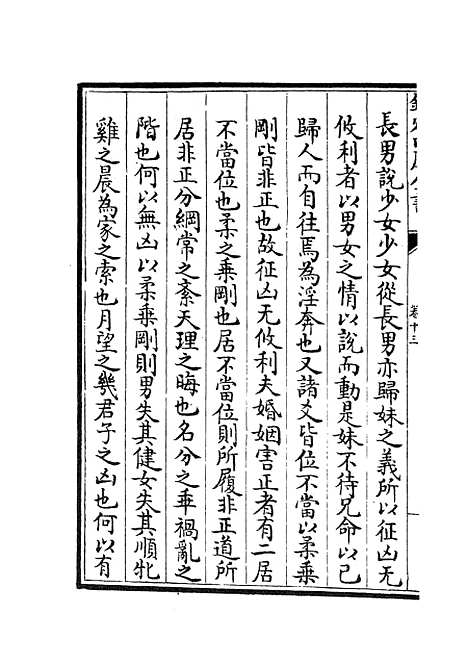 卷十三
長男說少女少女從長男亦歸妹之義所以征凶无
攸利者以男女之情以說而動是妹不待兄命以己
歸人而自往焉為淫奔也又諸爻皆位不當以柔乗
剛皆非正也故征凶无攸利夫婚姻害正者有二居
不當位也柔之乗剛也居不當位則所履非正道所
居非正分綱常之紊天理之晦也名分之乖禍亂之
階也何以無凶以柔乗剛則男失其健女失其順牝
雞之晨為家之索也月望之幾君子之凶也何以有